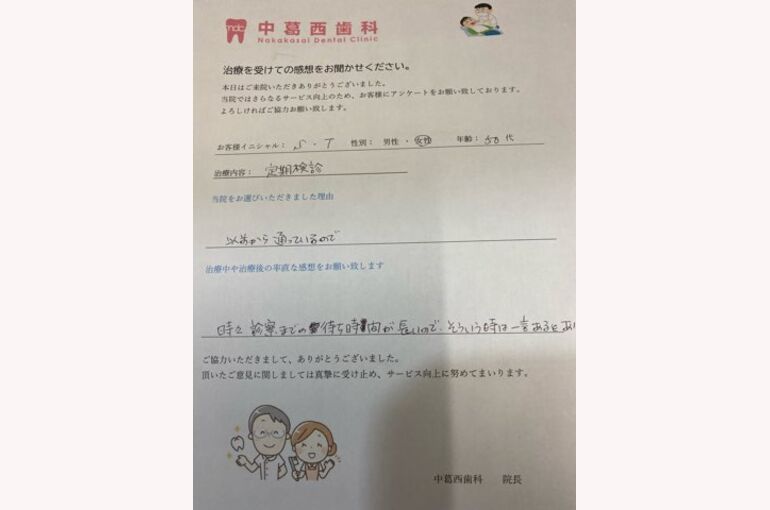 ndc 中葛西歯科
Nakakasai Dental Clinic
治療を受けての感想をお聞かせください。
本日はご来院いただきありがとうございました。
当院ではさらなるサービス向上のため、お客様にアンケートをお願い致しております。
よろしければご協力お願い致します。
お客様イニシャル： S ・ T 性別： 男性 ・ 女性 年齢：50代
治療内容： 定期検診
当院をお選びいただきました理由
以前から通っているので
治療中や治療後の率直な感想をお願い致します
時々 診察までの待ち時間が長いので、そういう時は一言あるとあ
ご協力いただきまして、ありがとうございました。
頂いたご意見に関しましては真摯に受け止め、サービス向上に努めてまいります。
中葛西歯科 院長